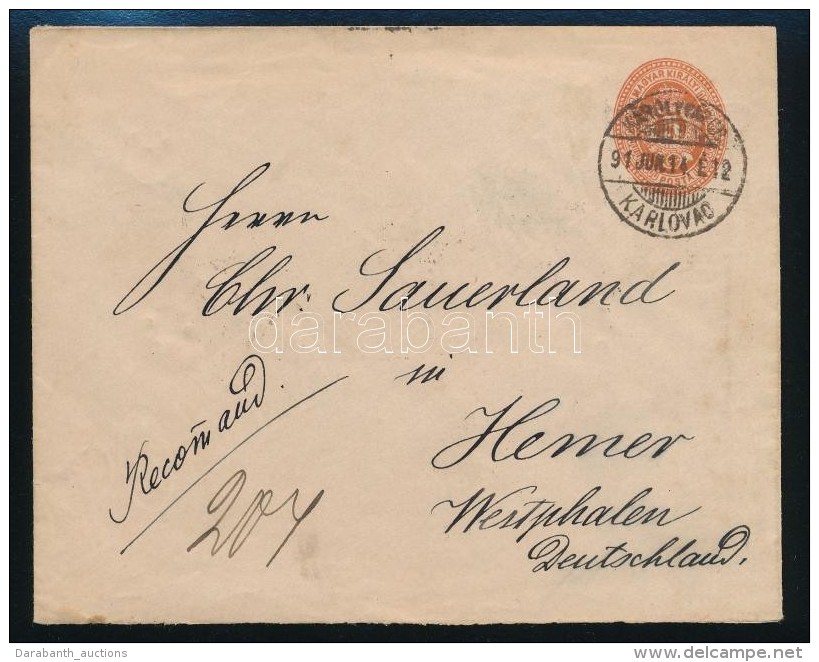 MAGYAR KIRÁLYI
POSTA
91 JUN.14. É12
KARLOVAC
Herrn
Chr. Sauerland
darabanth
in
Hemer
Westphalen
Deutschland.
Recom̄and.
204
Darabanth_auctions
www.delcampe.net